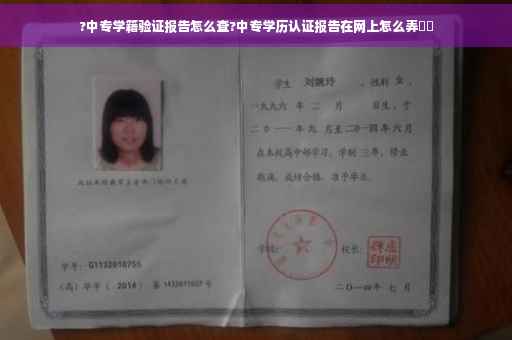 ?中专学籍验证报告怎么查?中专学历认证报告在网上怎么弄
学生 刘婉玲 ,性别 女 ,
一九九六 年 二 月 日生,于
二0一一年九 月至二0一四年六月
在本校高中部学习,学制 三年,修业
期满,成绩合格,准予毕业。
学号: G1132010755
学校: 校长:
(高)毕字( 2014 )第 1432011027 号
二〇一四年 七 月